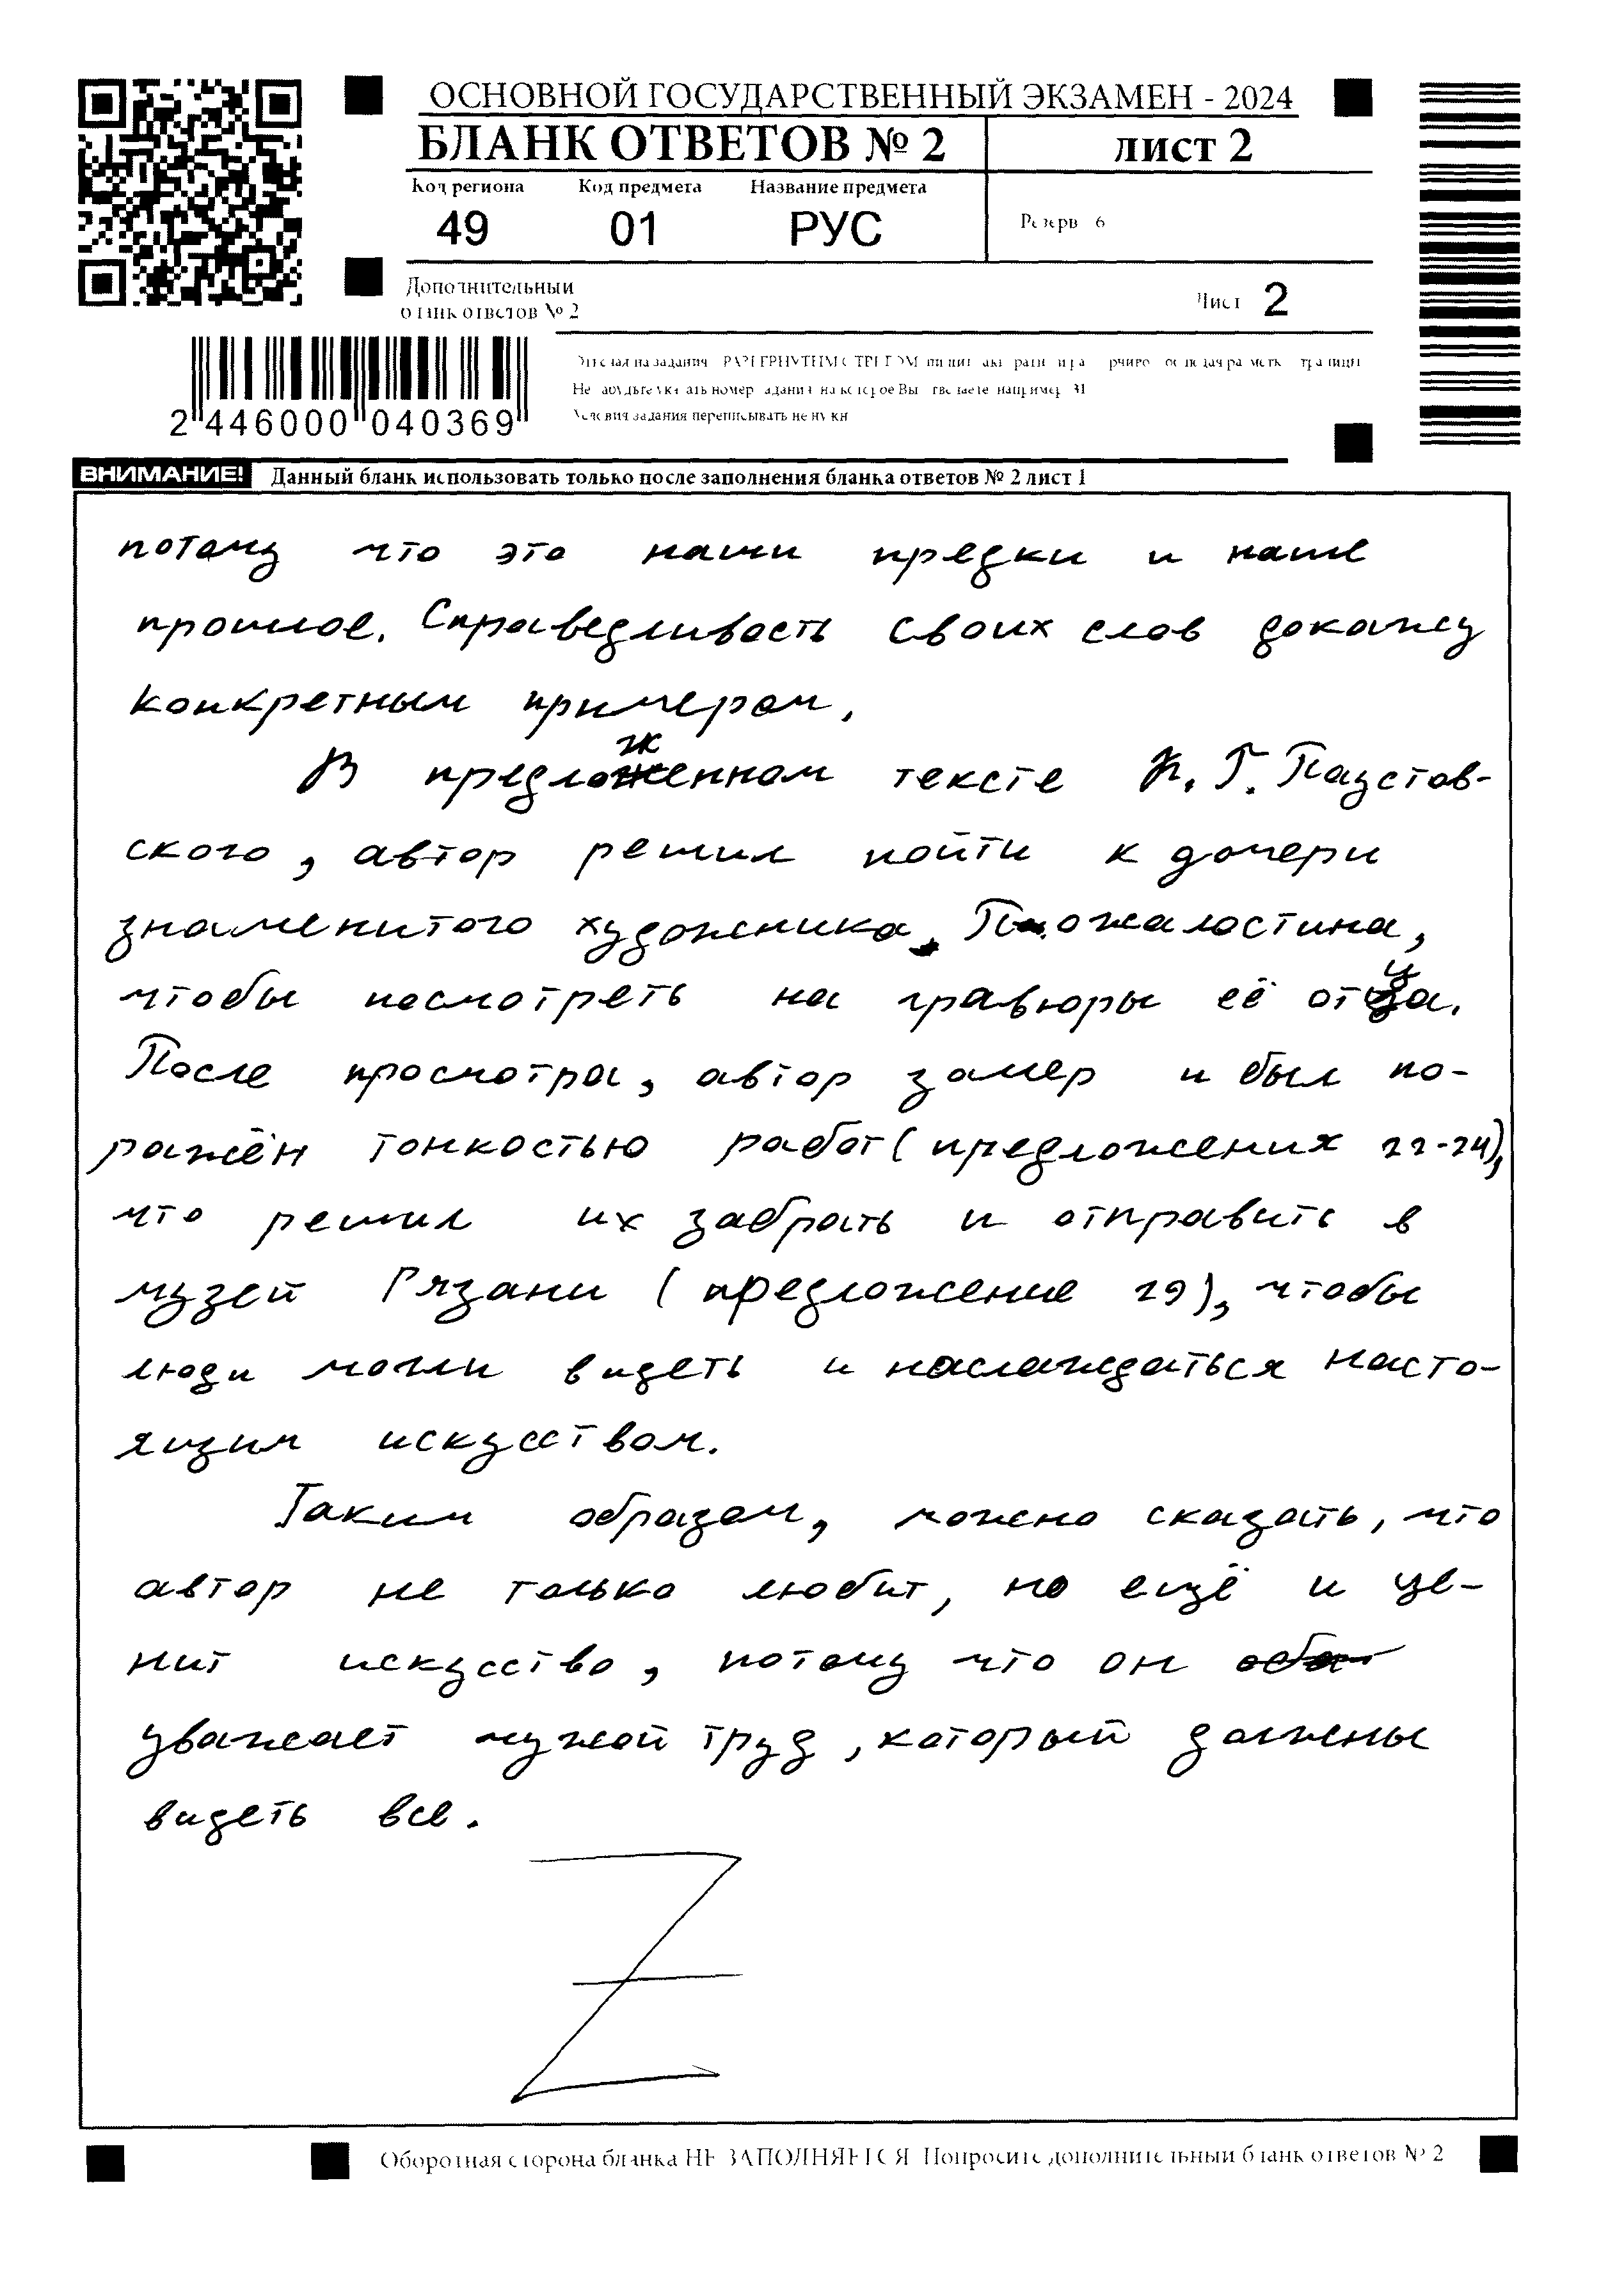 ОСНОВНОЙ ГОСУДАРСТВЕННЫЙ ЭКЗАМЕН - 2024
БЛАНК ОТВЕТОВ № 2 лист 2
Код региона Код предмета Название предмета
49 01 РУС
Резерв 6
Дополнительный
бланк ответов № 2
Лист 2
2 446000 040369
Условия задания переписывать не нужн
ВНИМАНИЕ! Данный бланк использовать только после заполнения бланка ответов № 2 лист 1
потому что это наши предки и наше
прошлое. Справедливость своих слов докажу
конкретным примером.
В предложенном тексте К. Г. Паустов-
ского, автор решил пойти к дочери
знаменитого художника Пожалостина,
чтобы посмотреть на гравюры её отца.
После просмотра, автор замер и был по-
ражён тонкостью работ (предложения 22-24),
что решил их забрать и отправить в
музей Рязани (предложение 29), чтобы
люди могли видеть и наслаждаться насто-
ящим искусством.
Таким образом, можно сказать, что
автор не только любит, но ещё и це-
нит искусство, потому что он
уважает чужой труд, который должены
видеть все.
Z
Оборотная сторона бланка НЕ ЗАПОЛНЯЕТСЯ Попросите дополнительный бланк ответов № 2